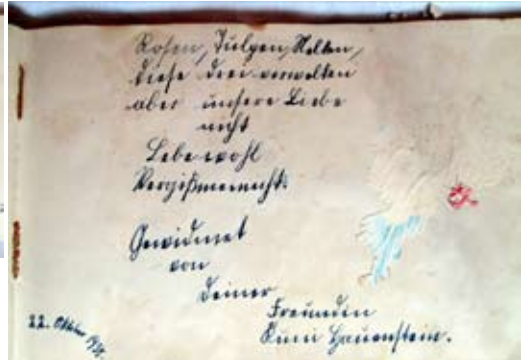 Rosen, Tulpen, Nelken,
diese drei verwelken
aber unsere Liebe
nicht
Lebewohl
Vergißmeinnicht.
Gewidmet
von
Deiner
Freundin
Kuni Hauenstein.
22. Oktober